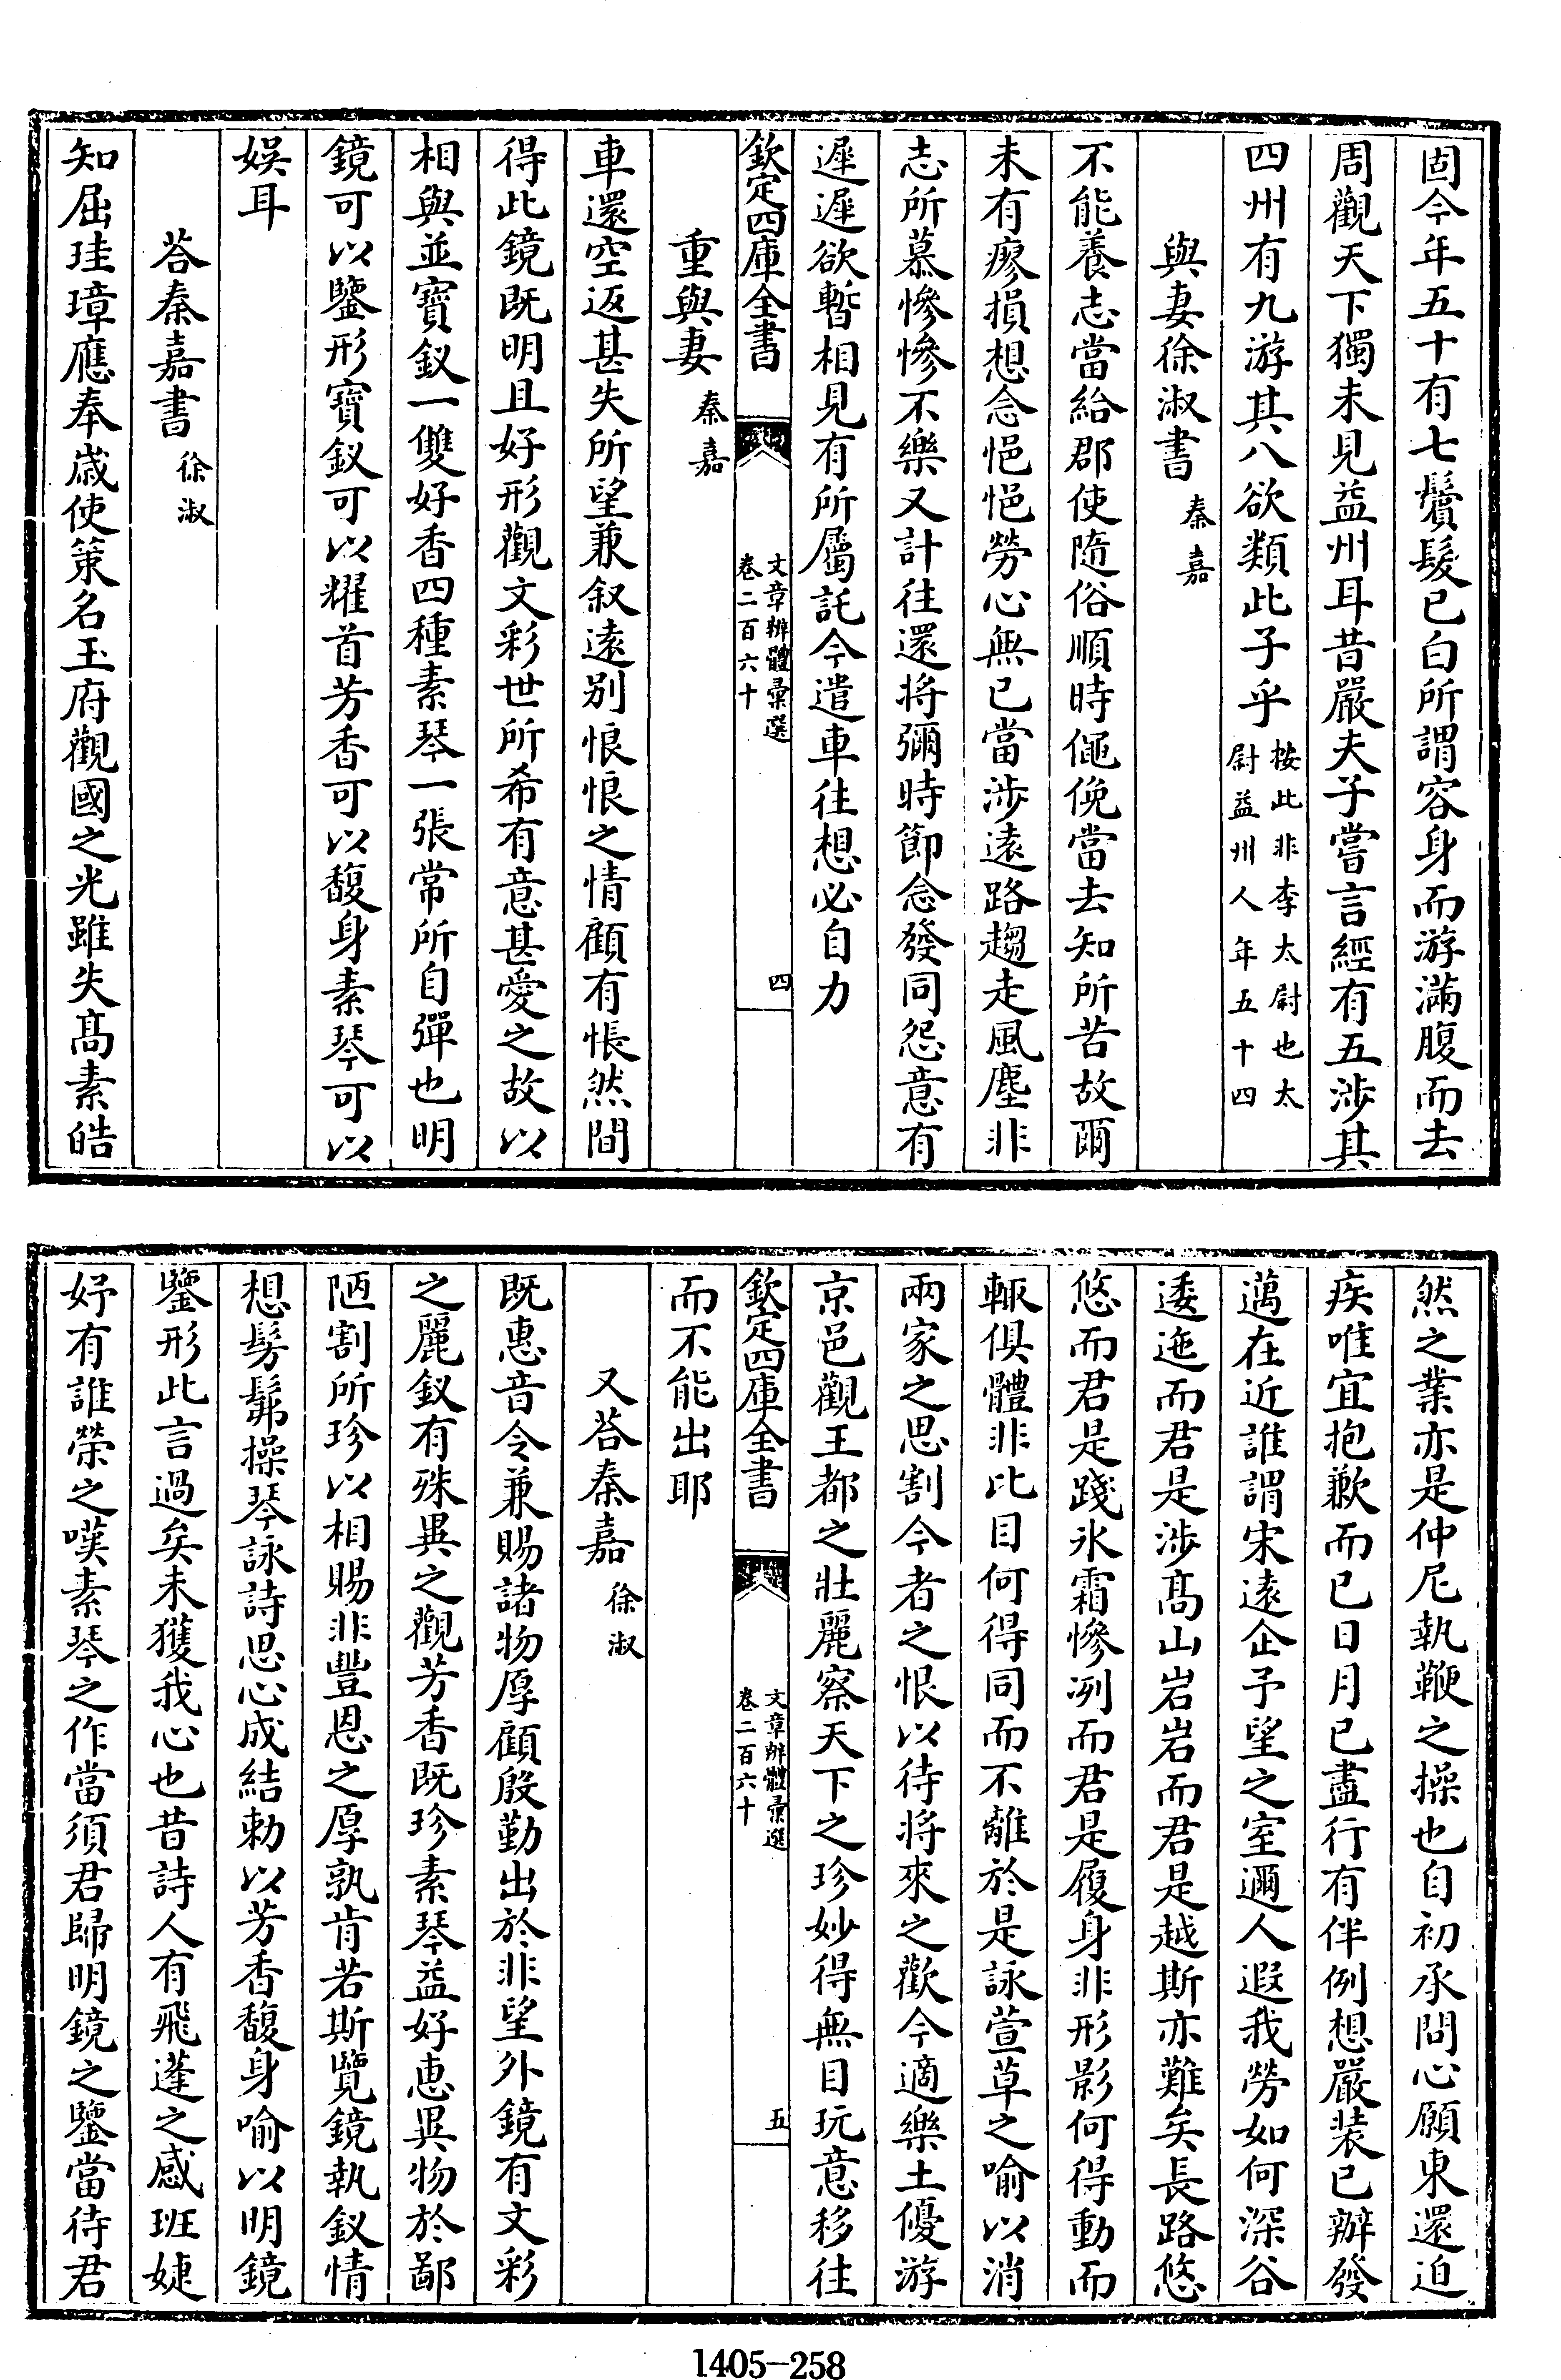 固今年五十有七鬢髮已白所謂容身而游滿腹而去
周觀天下獨未見益州耳昔嚴夫子嘗言經有五涉其
四州有九游其八欲類此子乎按此非李太尉也太
尉益州人年五十四
與妻徐淑書秦嘉
不能養志當給郡使隨俗順時僶俛當去知所苦故爾
未有瘳損想念悒悒勞心無已當涉遠路趨走風塵非
志所慕慘慘不樂又計往還將彌時節念發同怨意有
遲遲欲暫相見有所屬託今遣車往想必自力
欽定四庫全書
文章辨體彙選
卷二百六十
四
重與妻秦嘉
車還空返甚失所望兼叙遠别恨恨之情顧有悵然間
得此鏡既明且好形觀文彩世所希有意甚愛之故以
相與並寶釵一雙好香四種素琴一張常所自彈也明
鏡可以鑒形寶釵可以耀首芳香可以馥身素琴可以
娛耳
荅秦嘉書徐淑
知屈珪璋應奉歲使策名王府觀國之光雖失髙素皓
然之業亦是仲尼執鞭之操也自初承問心願東還迫
疾唯宜抱歉而已日月已盡行有伴例想嚴装已辦發
邁在近誰謂宋遠企予望之室邇人遐我勞如何深谷
逶迤而君是涉髙山岩岩而君是越斯亦難矣長路悠
悠而君是踐氷霜慘冽而君是履身非形影何得動而
輒俱體非比目何得同而不離於是詠萱草之喻以消
兩家之思割今者之恨以待將來之歡今適樂土優游
京邑觀王都之壮麗察天下之珍妙得無目玩意移往
欽定四庫全書
文章辨體彙選
卷二百六十
五
而不能出耶
又荅秦嘉徐淑
既惠音令兼賜諸物厚顧殷勤出於非望外鏡有文彩
之麗釵有殊異之觀芳香既珍素琴益好惠異物於鄙
陋割所珍以相賜非豐恩之厚孰肯若斯覽鏡執釵情
想髣髴操琴詠詩思心成結勅以芳香馥身喻以明鏡
鑒形此言過矣未獲我心也昔詩人有飛蓬之感班婕
妤有誰榮之嘆素琴之作當須君歸明鏡之鑒當待君
1405-258